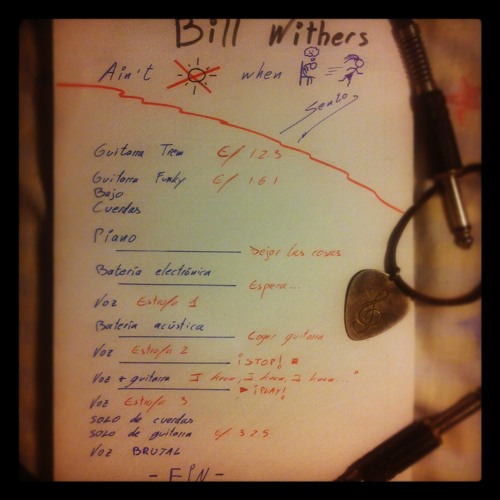 Bill Withers
Ain't when
Guitarra Trem E/ 1 2 3
Guitarra Funky E/ 1 6 1
Bajo
Cuerdas
Piano
Dejar las cosas
Batería electrónica
Espera...
Voz Estrofa 1
Batería acústica
Coger guitarra
Voz Estrofa 2
¡STOP! ■
Voz + guitarra I know, I know, I know..."
► ¡PLAY!
Voz Estrofa 3
SOLO de cuerdas
SOLO de guitarra E/ 3 2 5
Voz BRUTAL
- FIN -